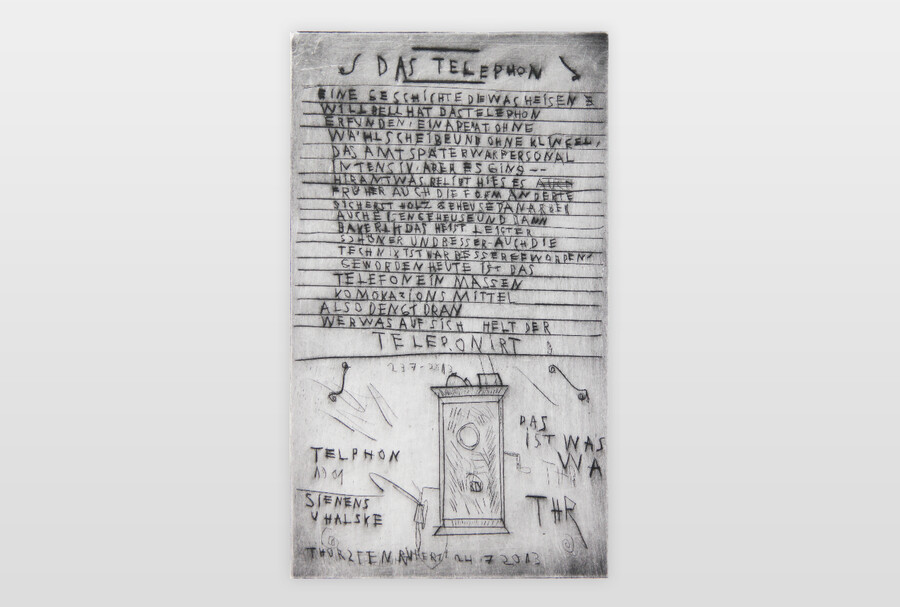 DAS TELEPHON
EINE GESCHICHTE DIE WAS HEISEN E
WILL BELL HAT DAS TELEPHON
ERFUNDEN. EIN APERAT OHNE
WÄHLSCHEIBE UND OHNE KLINGEL,
DAS AMT SPÄTER WAR PERSONAL
INTENSIV. ABER ES GING --
WAS BELIBT HIES ES
FRÜHER AUCH DIE FORM ÄNDERTE
SICH ERST HOLZ GEHEUSE DANN
AUCHE GEHEUSE UND DANN
DAS HEIST LEIGTER
SCHÖNER UND BESSER AUCH DIE
TECHNIK IST WAR BESSER GEWORDEN
GEWORDEN HEUTE IST DAS
TELEFON EIN MASSEN
KOMOKAZIONS MITTEL
ALSO DENGT DRAN
WER WAS AUF SICH HELT DER
TELEPONIRT
23 7 - 2013
DAS
IST WAS
WA
TELPHON
1901
THR
SIENENS
U HALSKE
THORZTEN 24.7 2013